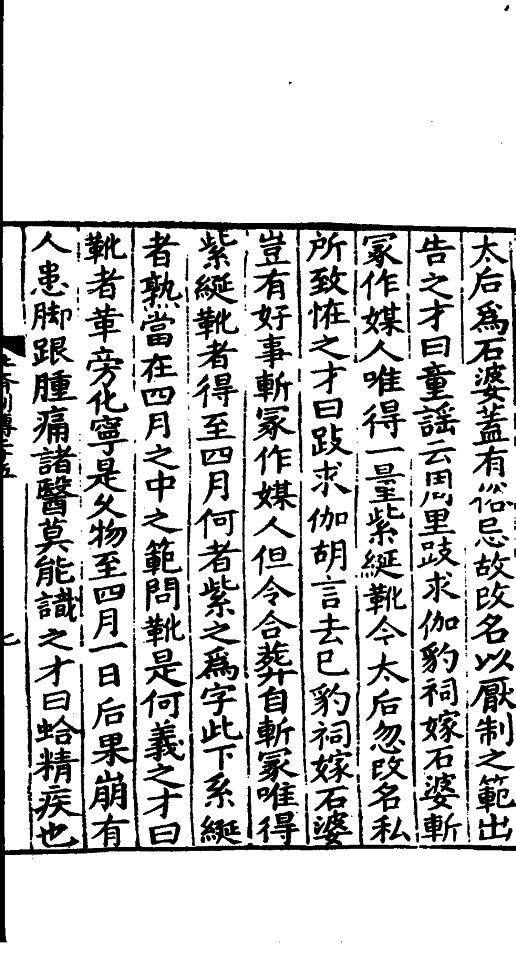 太后爲石婆蓋有俗忌故改名以厭制之範出
告之才曰童謡云周里跂求伽豹祠嫁石婆斬
冢作媒人唯得一量紫綖靴今太后忽改名私
所致恠之才曰跂求伽胡言去巳豹祠嫁石婆
豈有好事斬冢作媒人但令合葬自斬冢唯得
紫綖靴者得至四月何者紫之爲字此下系綖
者熟當在四月之中之範問靴是何義之才曰
靴者革旁化寧是久物至四月一日后果崩有
人患脚跟腫痛諸醫莫能識之才曰蛤精疾也
七